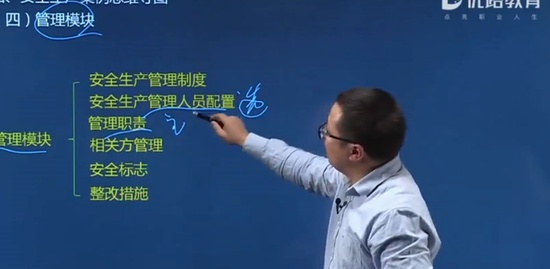 优路教育
点亮职业人生
四）管理模块
安全生产管理制度
安全生产管理人员配置 选
管理职责 主
管理模块
相关方管理
安全标志
整改措施